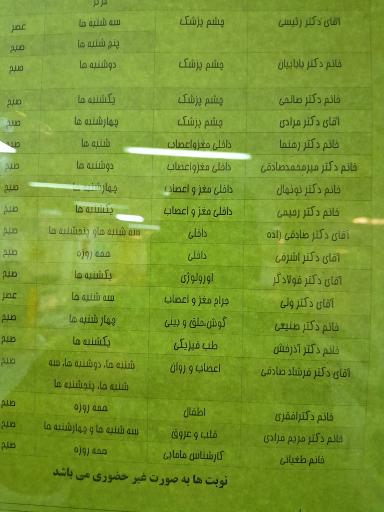 مرکز
آقای دکتر رئیسی چشم پزشک سه شنبه ها عصر
پنج شنبه ها صبح
خانم دکتر بابابیان چشم پزشک دوشنبه ها صبح
خانم دکتر صالحی چشم پزشک یکشنبه ها صبح
آقای دکتر مرادی چشم پزشک چهارشنبه ها صبح
خانم دکتر رهنما داخلی مغزواعصاب شنبه ها صبح
خانم دکتر میرمحمدصادقی داخلی مغزواعصاب دوشنبه ها صبح
خانم دکتر نونهال داخلی مغز و اعصاب چهارشنبه ها صبح
خانم دکتر رحیمی داخلی مغز و اعصاب پنجشنبه ها صبح
آقای دکتر صادقی زاده داخلی سه شنبه هاو پنجشنبه ها صبح
آقای دکتر اشرفی داخلی همه روزه صبح
آقای دکتر فولادگر اورولوژی یکشنبه ها صبح
آقای دکتر ولی جراح مغز و اعصاب سه شنبه ها عصر
خانم دکتر صنیعی گوش،حلق و بینی چهار شنبه ها صبح
خانم دکتر آذرفش طب فیزیکی یکشنبه ها صبح
آقای دکتر فرشاد صادقی اعصاب و روان شنبه ها، دوشنبه ها، سه صبح
شنبه ها، پنجشنبه ها
خانم دکترافقری اطفال همه روزه صبح
خانم دکتر مریم مرادی قلب و عروق سه شنبه ها و چهارشنبه ها صبح
خانم طغیانی کارشناس مامایی همه روزه صبح
نوبت ها به صورت غیر حضوری می باشد